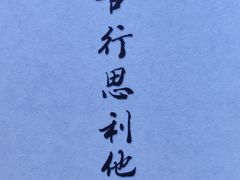 行思利他